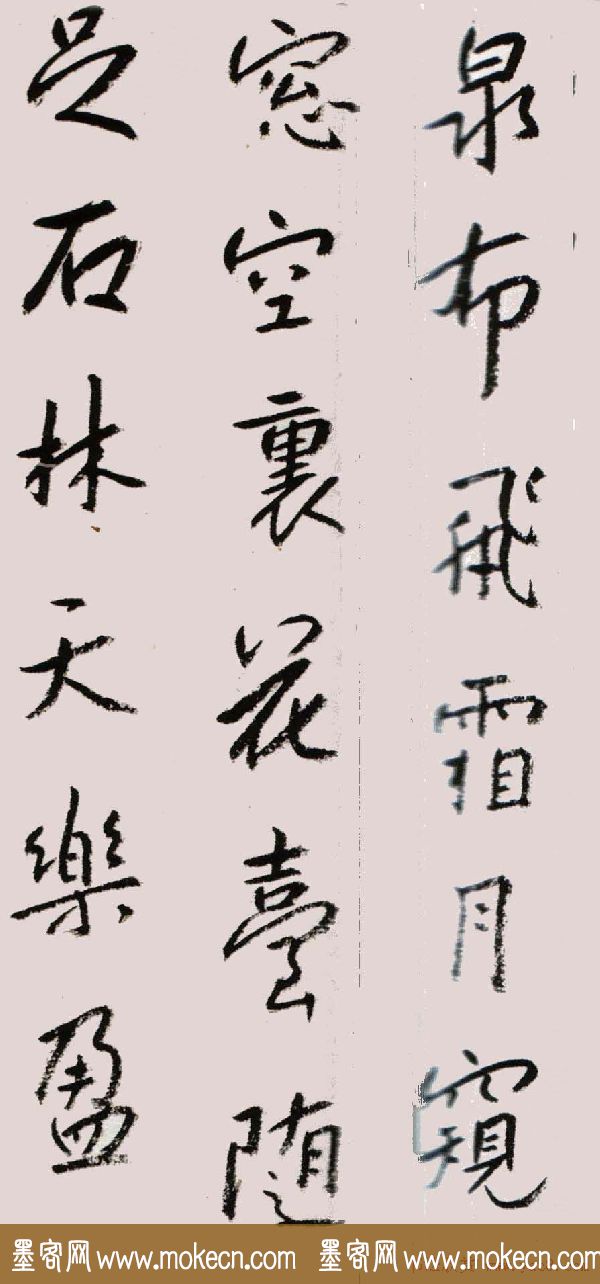 泉布飛霜月窺
窓空裏花臺随
足石林天樂盈
墨客网 www.mokecn.com 墨客网 www.mokecn.com